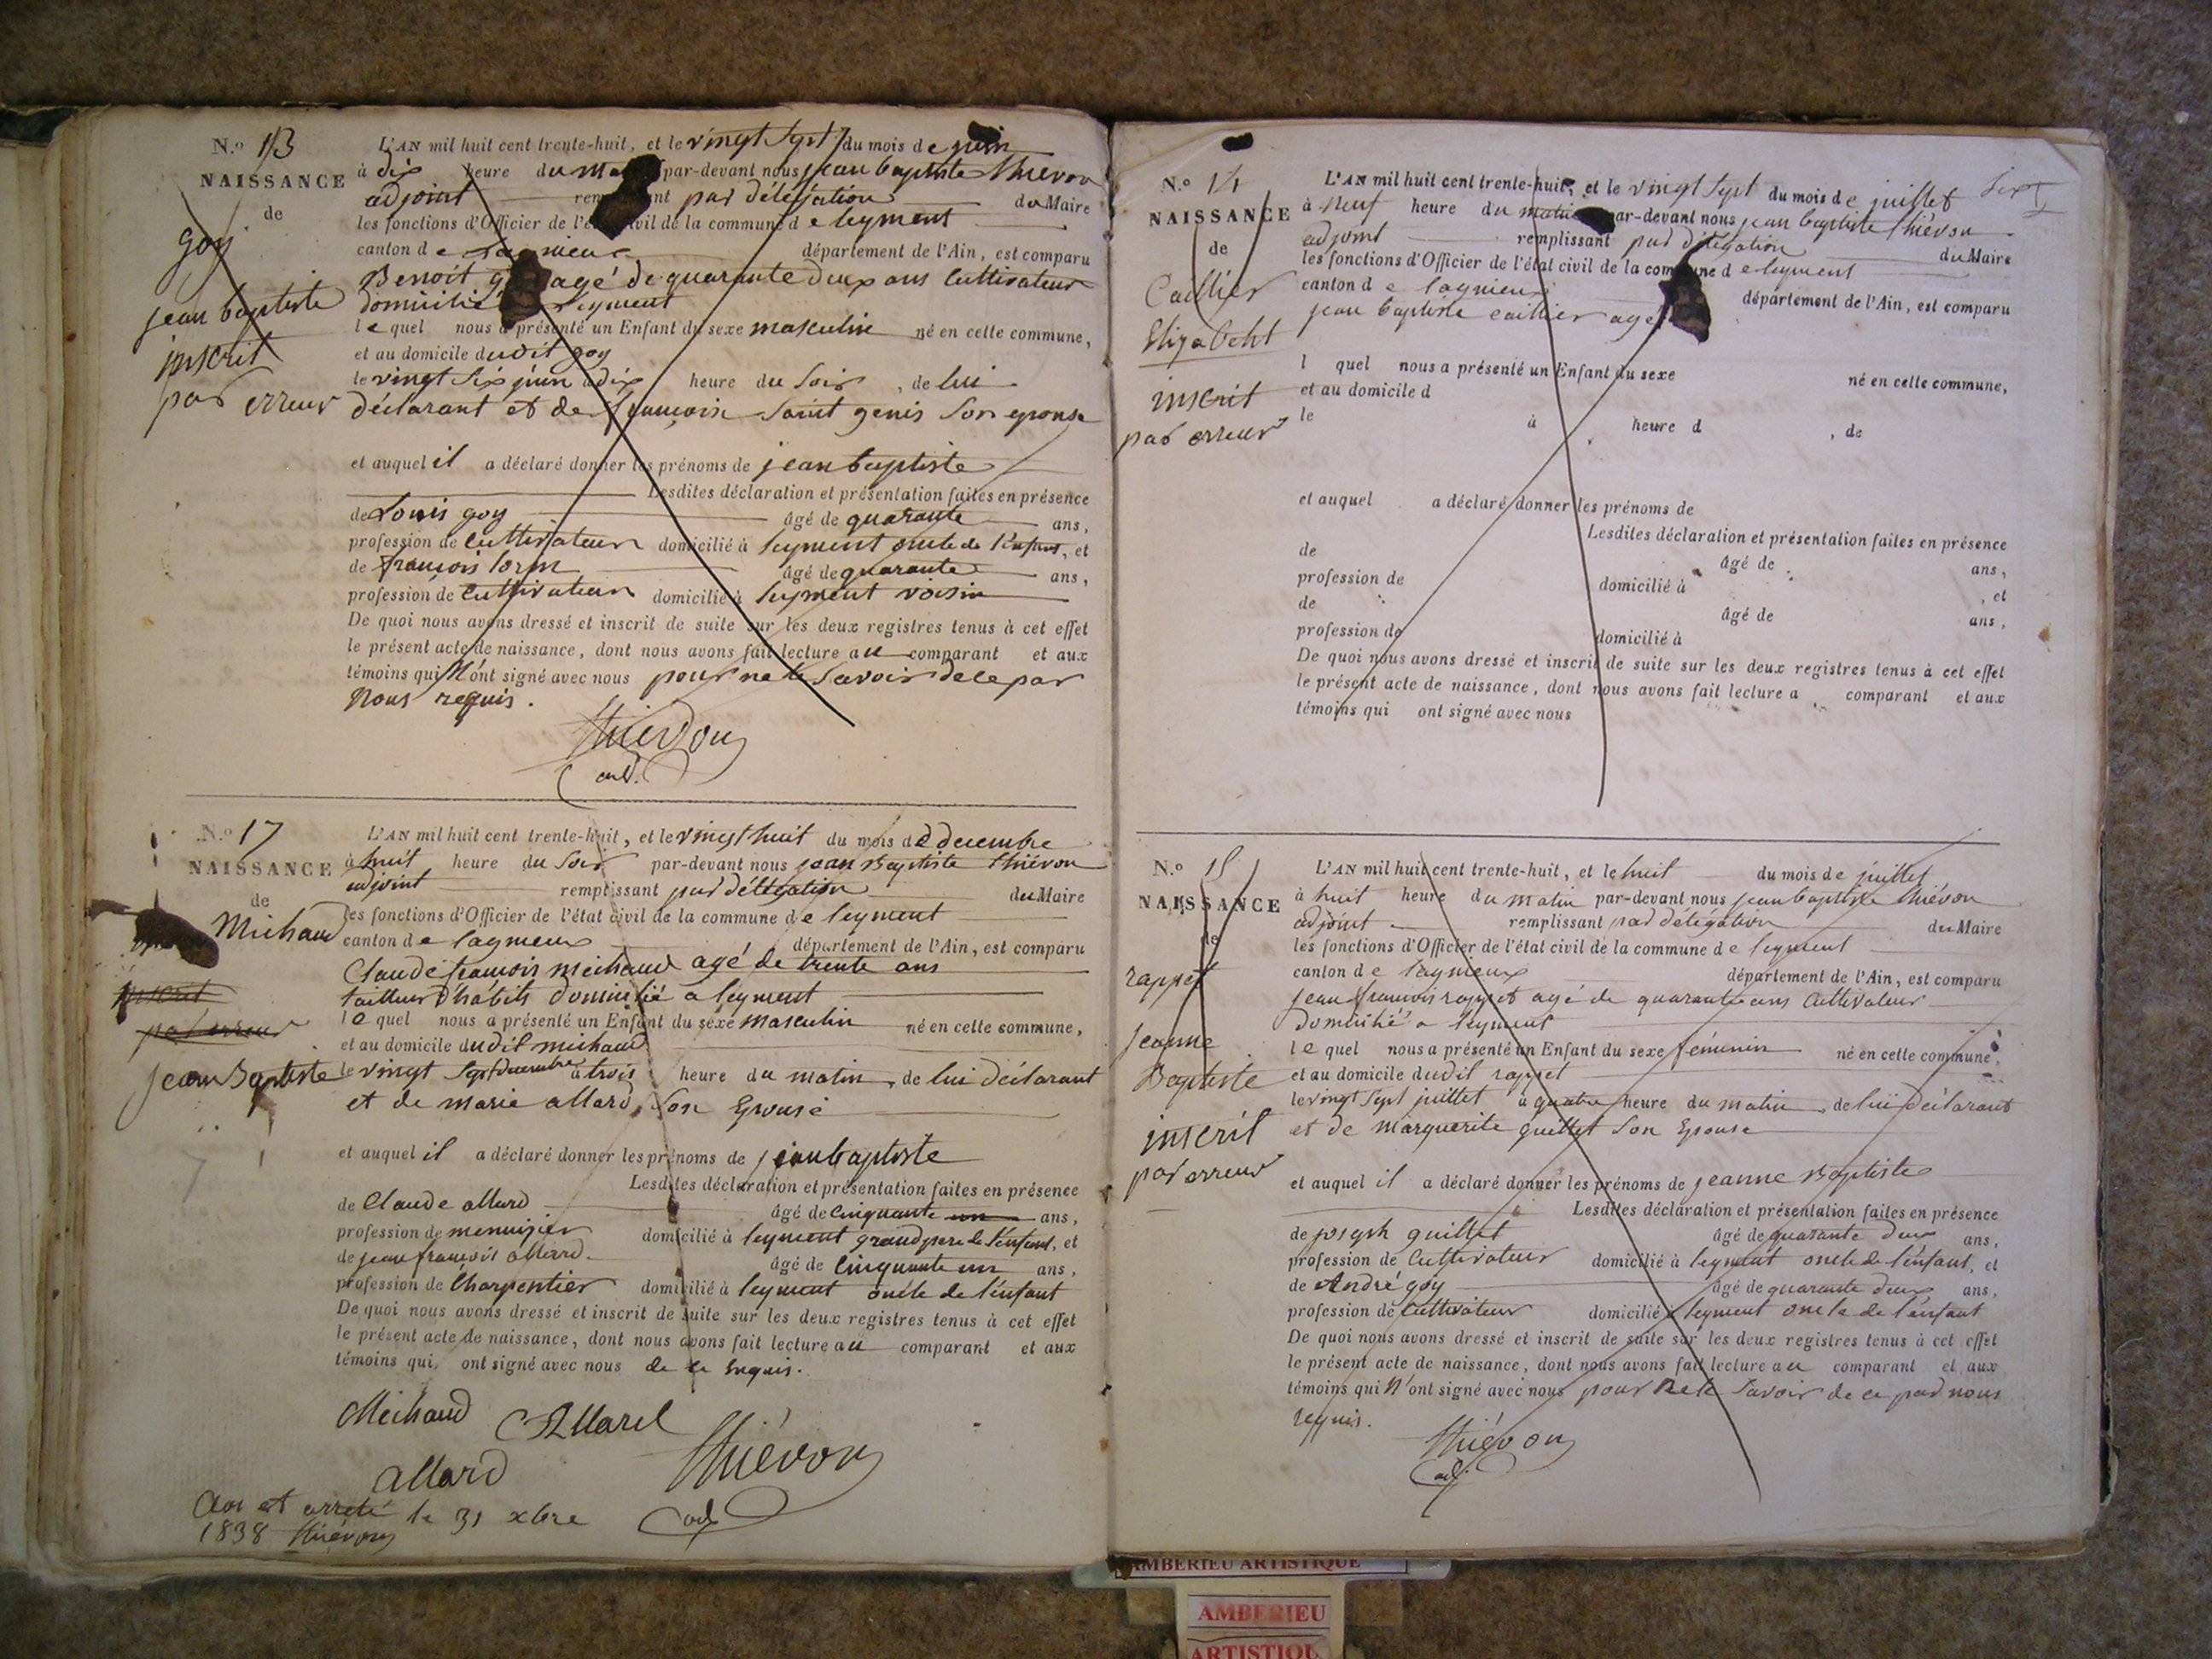 N.o 13
NAISSANCE
de
goy
jean baptiste
inscrit
par erreur
L'AN mil huit cent trente-huit, et le vingt sept du mois de juin
à dix heure du par-devant nous jean baptiste thiévon
adjoint par délégation du Maire
les fonctions d'Officier de l'état civil de la commune de leyment
canton de lagnieux département de l'Ain, est comparu
Benoit agé de quarante deux ans Cultivateur
domicilié leyment
lequel nous a présenté un Enfant du sexe masculin né en cette commune,
et au domicile dudit goy
le vingt six juin à dix heure du soir, de lui
déclarant et de françoise saint genis son epouse
et auquel il a déclaré donner les prénoms de jean baptiste
Lesdites déclaration et présentation faites en présence
de Louis goy âgé de quarante ans,
profession de Cultivateur domicilié à leyment oncle de l'enfant, et
de françois âgé de quarante ans,
profession de Cultivateur domicilié à leyment voisin
De quoi nous avons dressé et inscrit de suite sur les deux registres tenus à cet effet
le présent acte de naissance, dont nous avons fait lecture au comparant et aux
témoins qui n'ont signé avec nous pour ne le savoir de ce par
nous requis.
thiévon
adj.
N.o 17
NAISSANCE
de
Michaud
inscrit
par erreur
jean Baptiste
L'AN mil huit cent trente-huit, et le vingt huit du mois de decembre
à huit heure du soir par-devant nous jean Baptiste thiévon
adjoint remplissant par délégation du Maire
les fonctions d'Officier de l'état civil de la commune de leyment
canton de lagnieux département de l'Ain, est comparu
Claude françois michaud agé de trente ans
tailleur d'habits domicilié a leyment
lequel nous a présenté un Enfant du sexe masculin né en cette commune,
et au domicile dudit michaud
le vingt sept decembre à trois heure du matin, de lui déclarant
et de marie allard, son Epouse
et auquel il a déclaré donner les prénoms de jean baptiste
Lesdites déclaration et présentation faites en présence
de Claude allard âgé de cinquante un ans,
profession de menuisier domicilié à leyment grand pere de l'enfant, et
de jean françois allard âgé de cinquante un ans,
profession de Charpentier domicilié à leyment oncle de l'enfant
De quoi nous avons dressé et inscrit de suite sur les deux registres tenus à cet effet
le présent acte de naissance, dont nous avons fait lecture au comparant et aux
témoins qui ont signé avec nous de ce requis.
Michaud Allard
allard thiévon
adj
Clos et arreté le 31 xbre
1838 thiévon
N.o 14
NAISSANCE
de
Caillier
Elizabeht
inscrit
par erreur
L'AN mil huit cent trente-huit, et le vingt sept du mois de juillet
à neuf heure du matin par-devant nous jean baptiste thiévon
adjoint remplissant par délégation du Maire
les fonctions d'Officier de l'état civil de la commune de leyment
canton de lagnieux département de l'Ain, est comparu
jean baptiste caillier agé
l quel nous a présenté un Enfant du sexe né en cette commune,
et au domicile d
le à heure d , de
et auquel a déclaré donner les prénoms de
Lesdites déclaration et présentation faites en présence
de âgé de ans,
profession de domicilié à , et
de âgé de ans,
profession de domicilié à
De quoi nous avons dressé et inscrit de suite sur les deux registres tenus à cet effet
le présent acte de naissance, dont nous avons fait lecture a comparant et aux
témoins qui ont signé avec nous
N.o 15
NAISSANCE
de
rappet
jeanne
Baptiste
inscrit
par erreur
L'AN mil huit cent trente-huit, et le huit du mois de juillet
à huit heure du matin par-devant nous jean baptiste thiévon
adjoint remplissant par délégation du Maire
les fonctions d'Officier de l'état civil de la commune de leyment
canton de lagnieux département de l'Ain, est comparu
jean françois rappet agé de quarante ans Cultivateur
domicilié a leyment
lequel nous a présenté un Enfant du sexe féminin né en cette commune,
et au domicile dudit rappet
le vingt sept juillet à quatre heure du matin, de lui déclarant
et de marguerite guillet son Epouse
et auquel il a déclaré donner les prénoms de jeanne Baptiste
Lesdites déclaration et présentation faites en présence
de joseph guillet âgé de quarante deux ans,
profession de Cultivateur domicilié à leyment oncle de l'enfant, et
de André goy âgé de quarante deux ans,
profession de Cultivateur domicilié à leyment oncle de l'enfant
De quoi nous avons dressé et inscrit de suite sur les deux registres tenus à cet effet
le présent acte de naissance, dont nous avons fait lecture au comparant et aux
témoins qui n'ont signé avec nous pour ne le savoir de ce par nous
requis.
thiévon
adj.
AMBERIEU ARTISTIQUE
AMBERIEU
ARTISTIQU